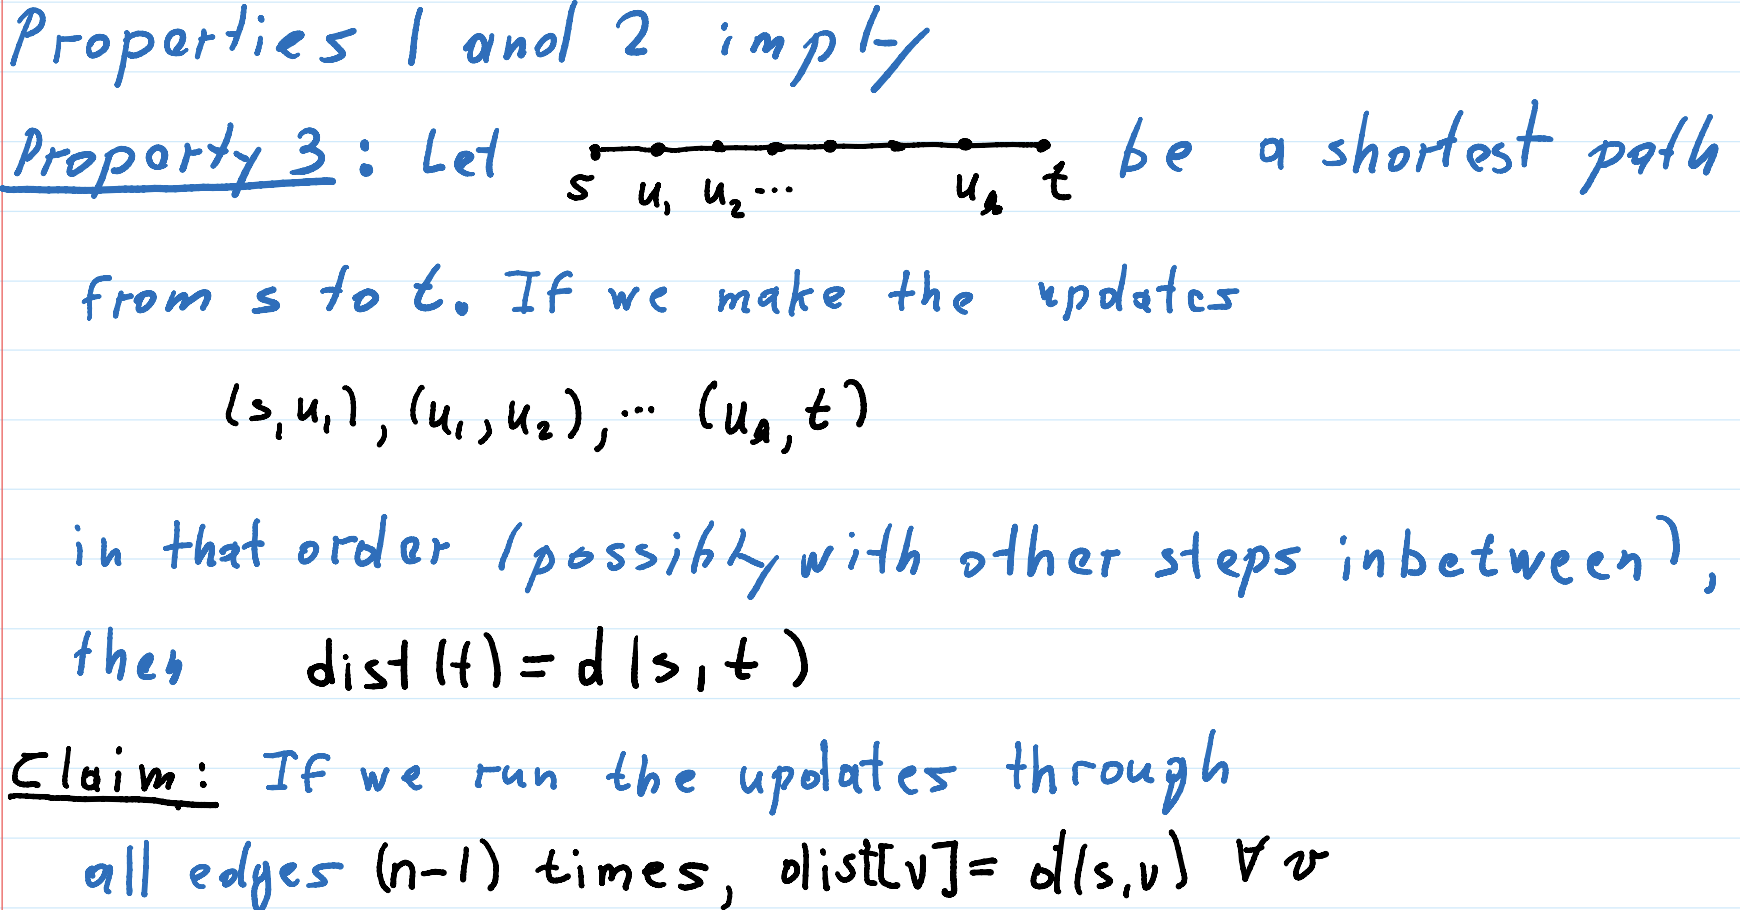 Properties 1 and 2 imply
Property 3: Let s u₁ u₂ ... u_k t be a shortest path
from s to t. If we make the updates
(s,u₁), (u₁,u₂), ... (u_k,t)
in that order (possibly with other steps inbetween),
then dist(t) = d(s,t)
Claim: If we run the updates through
all edges (n-1) times, dist[v] = d(s,v) ∀ v